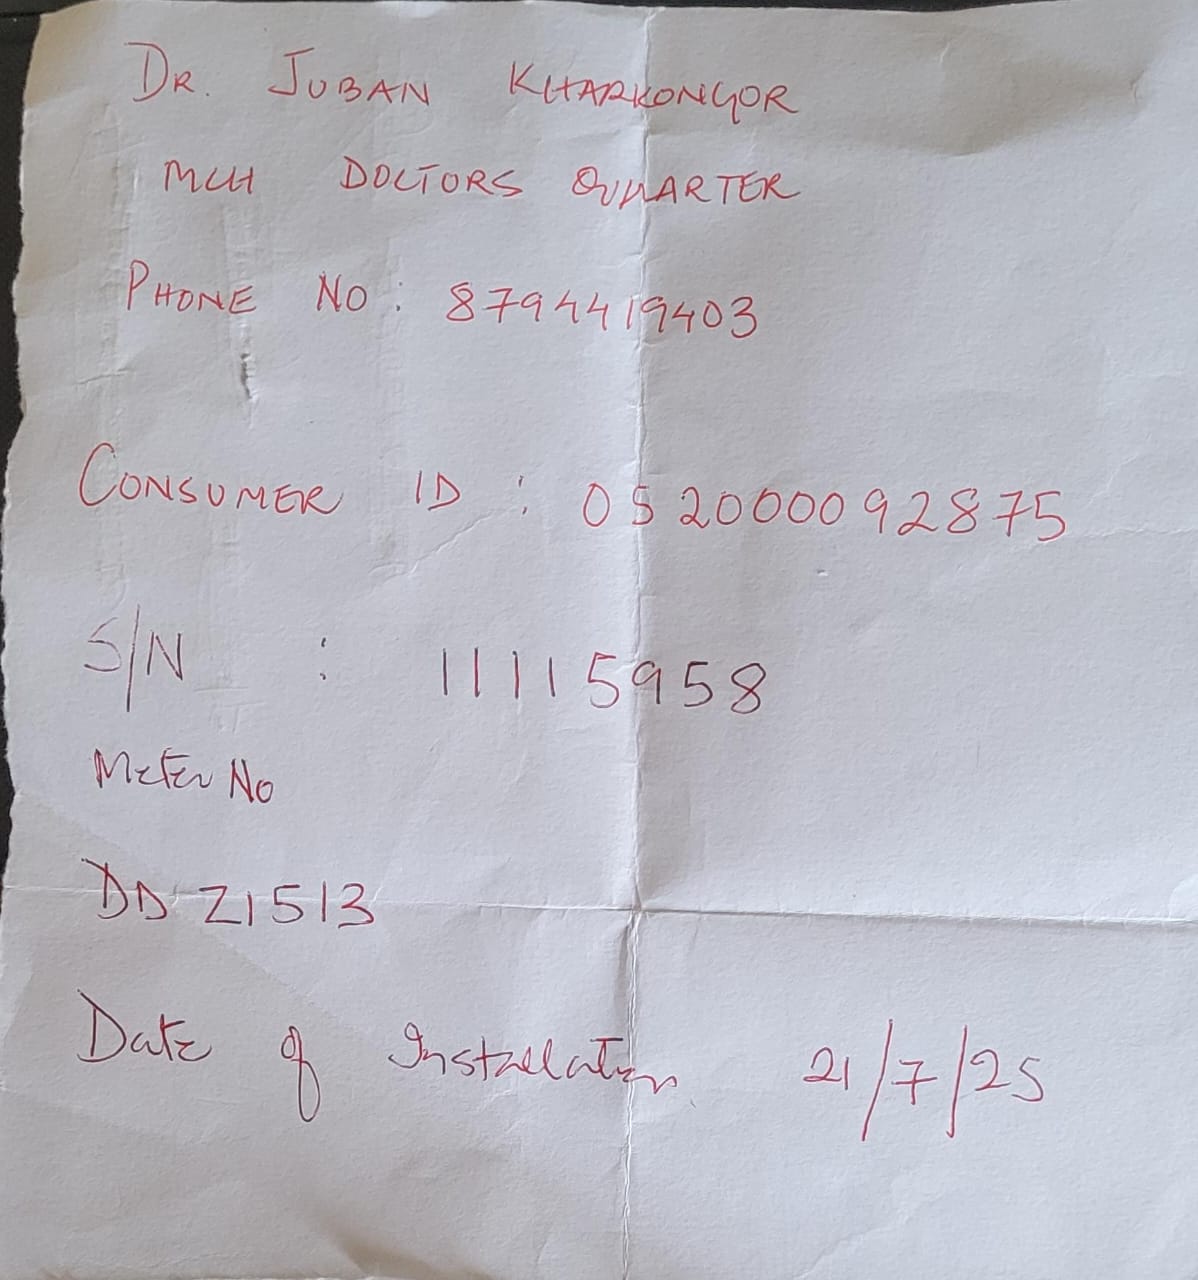 DR. JUBAN KHARKONGOR
MCH DOCTORS QUARTER
PHONE NO: 8794419403
CONSUMER ID : 052000092875
S/N : 11115958
Meter No
DD Z1513
Date of Installation 21/7/25